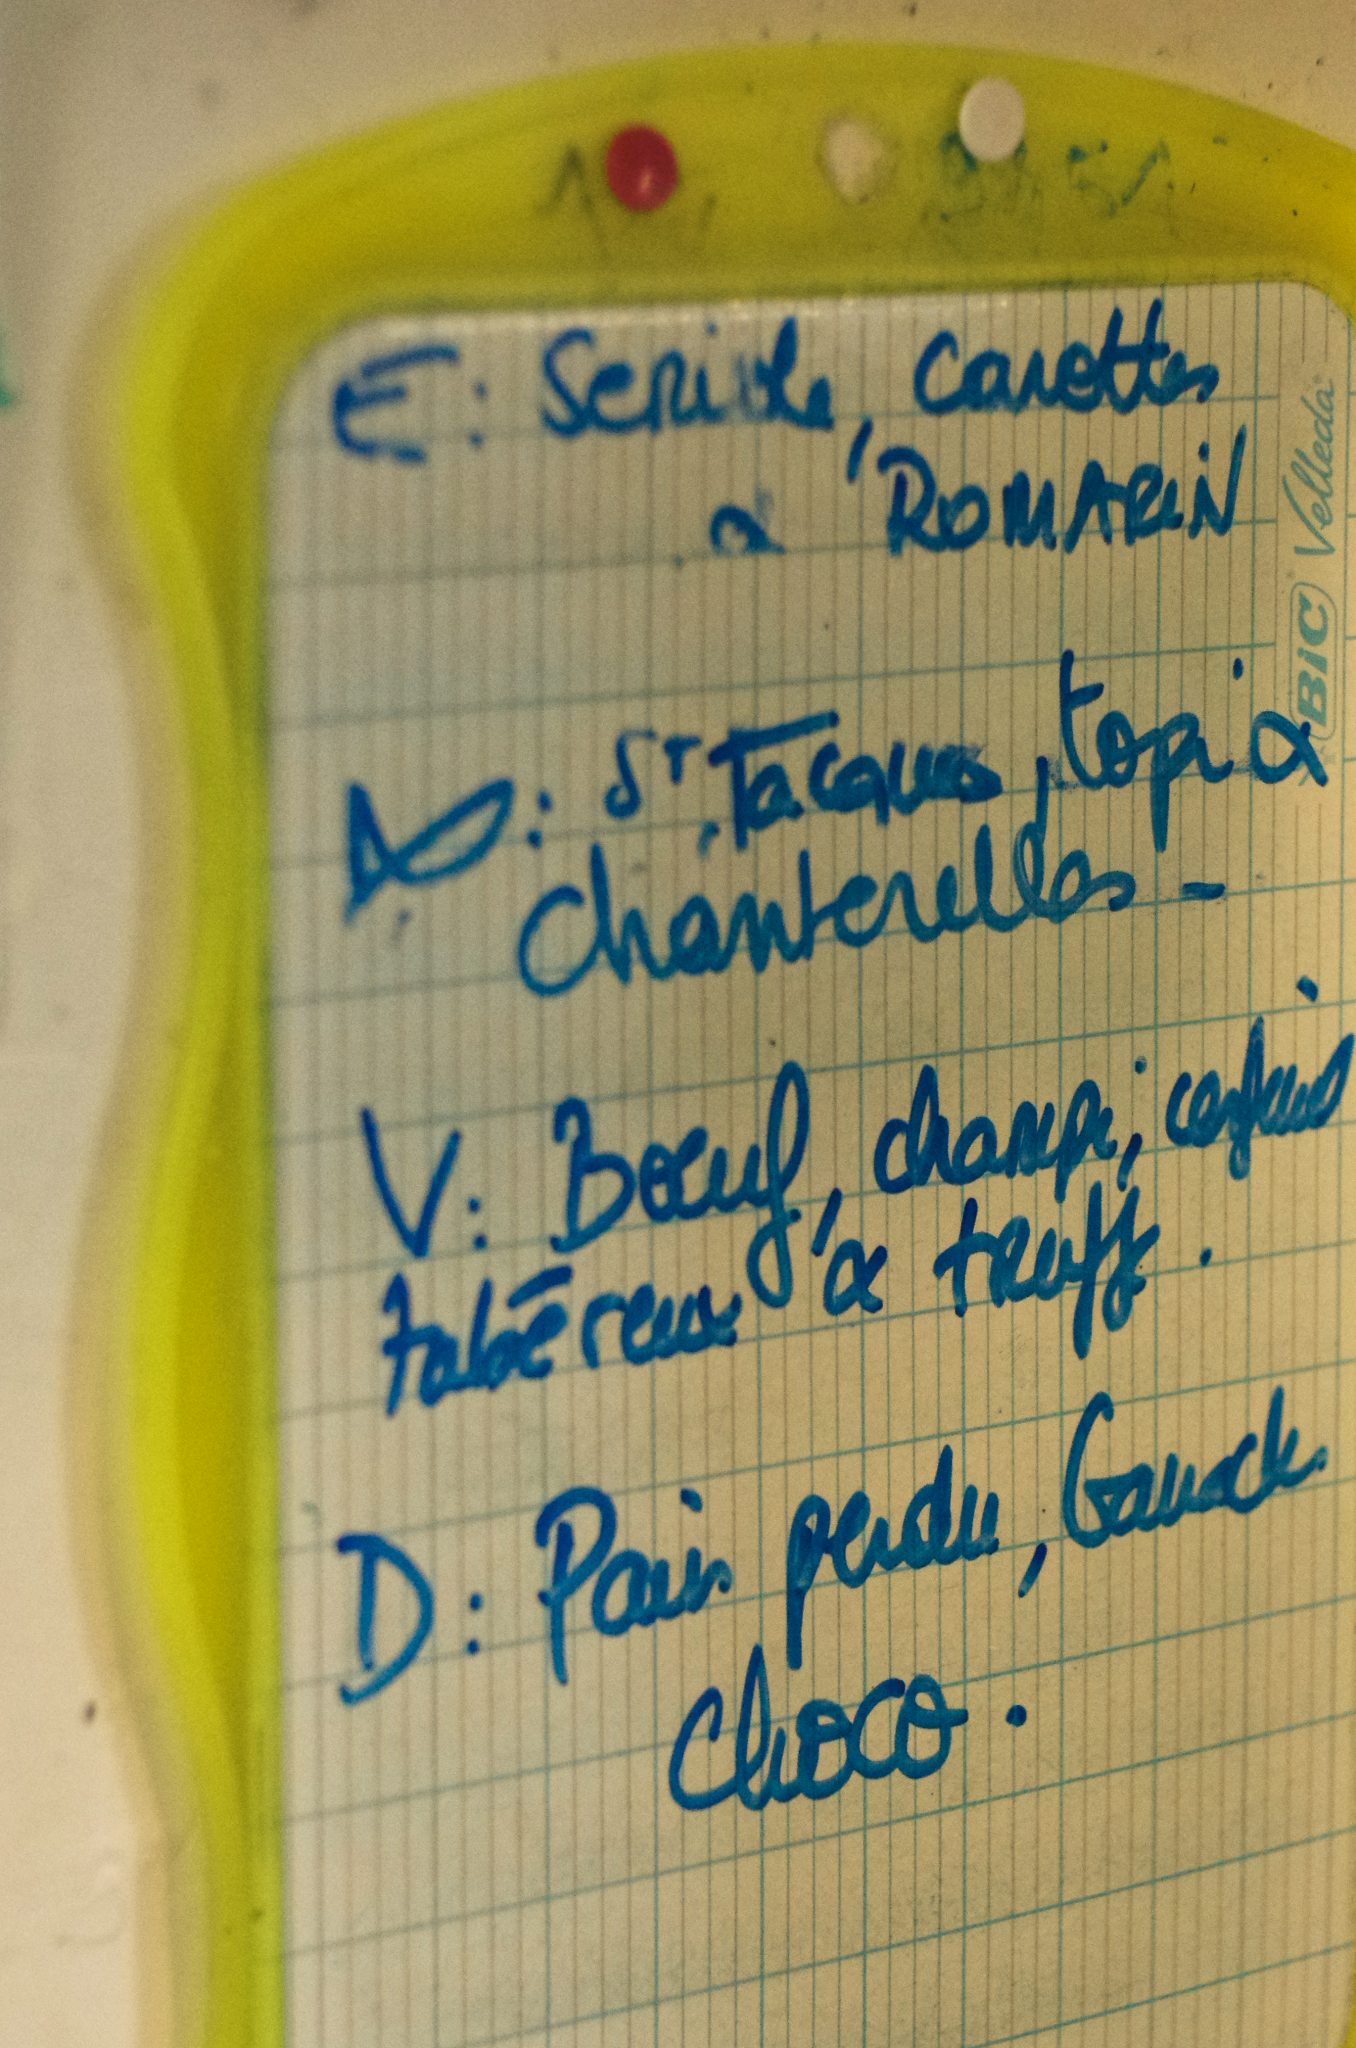 E: Seriole, carottes
& ROMARIN
: St Jacques, topi &
chanterelles -
V: Boeuf, champi, cerfeuil
tubéreux & truffe.
D: Pain perdu, Ganache
choco.
BIC Velleda